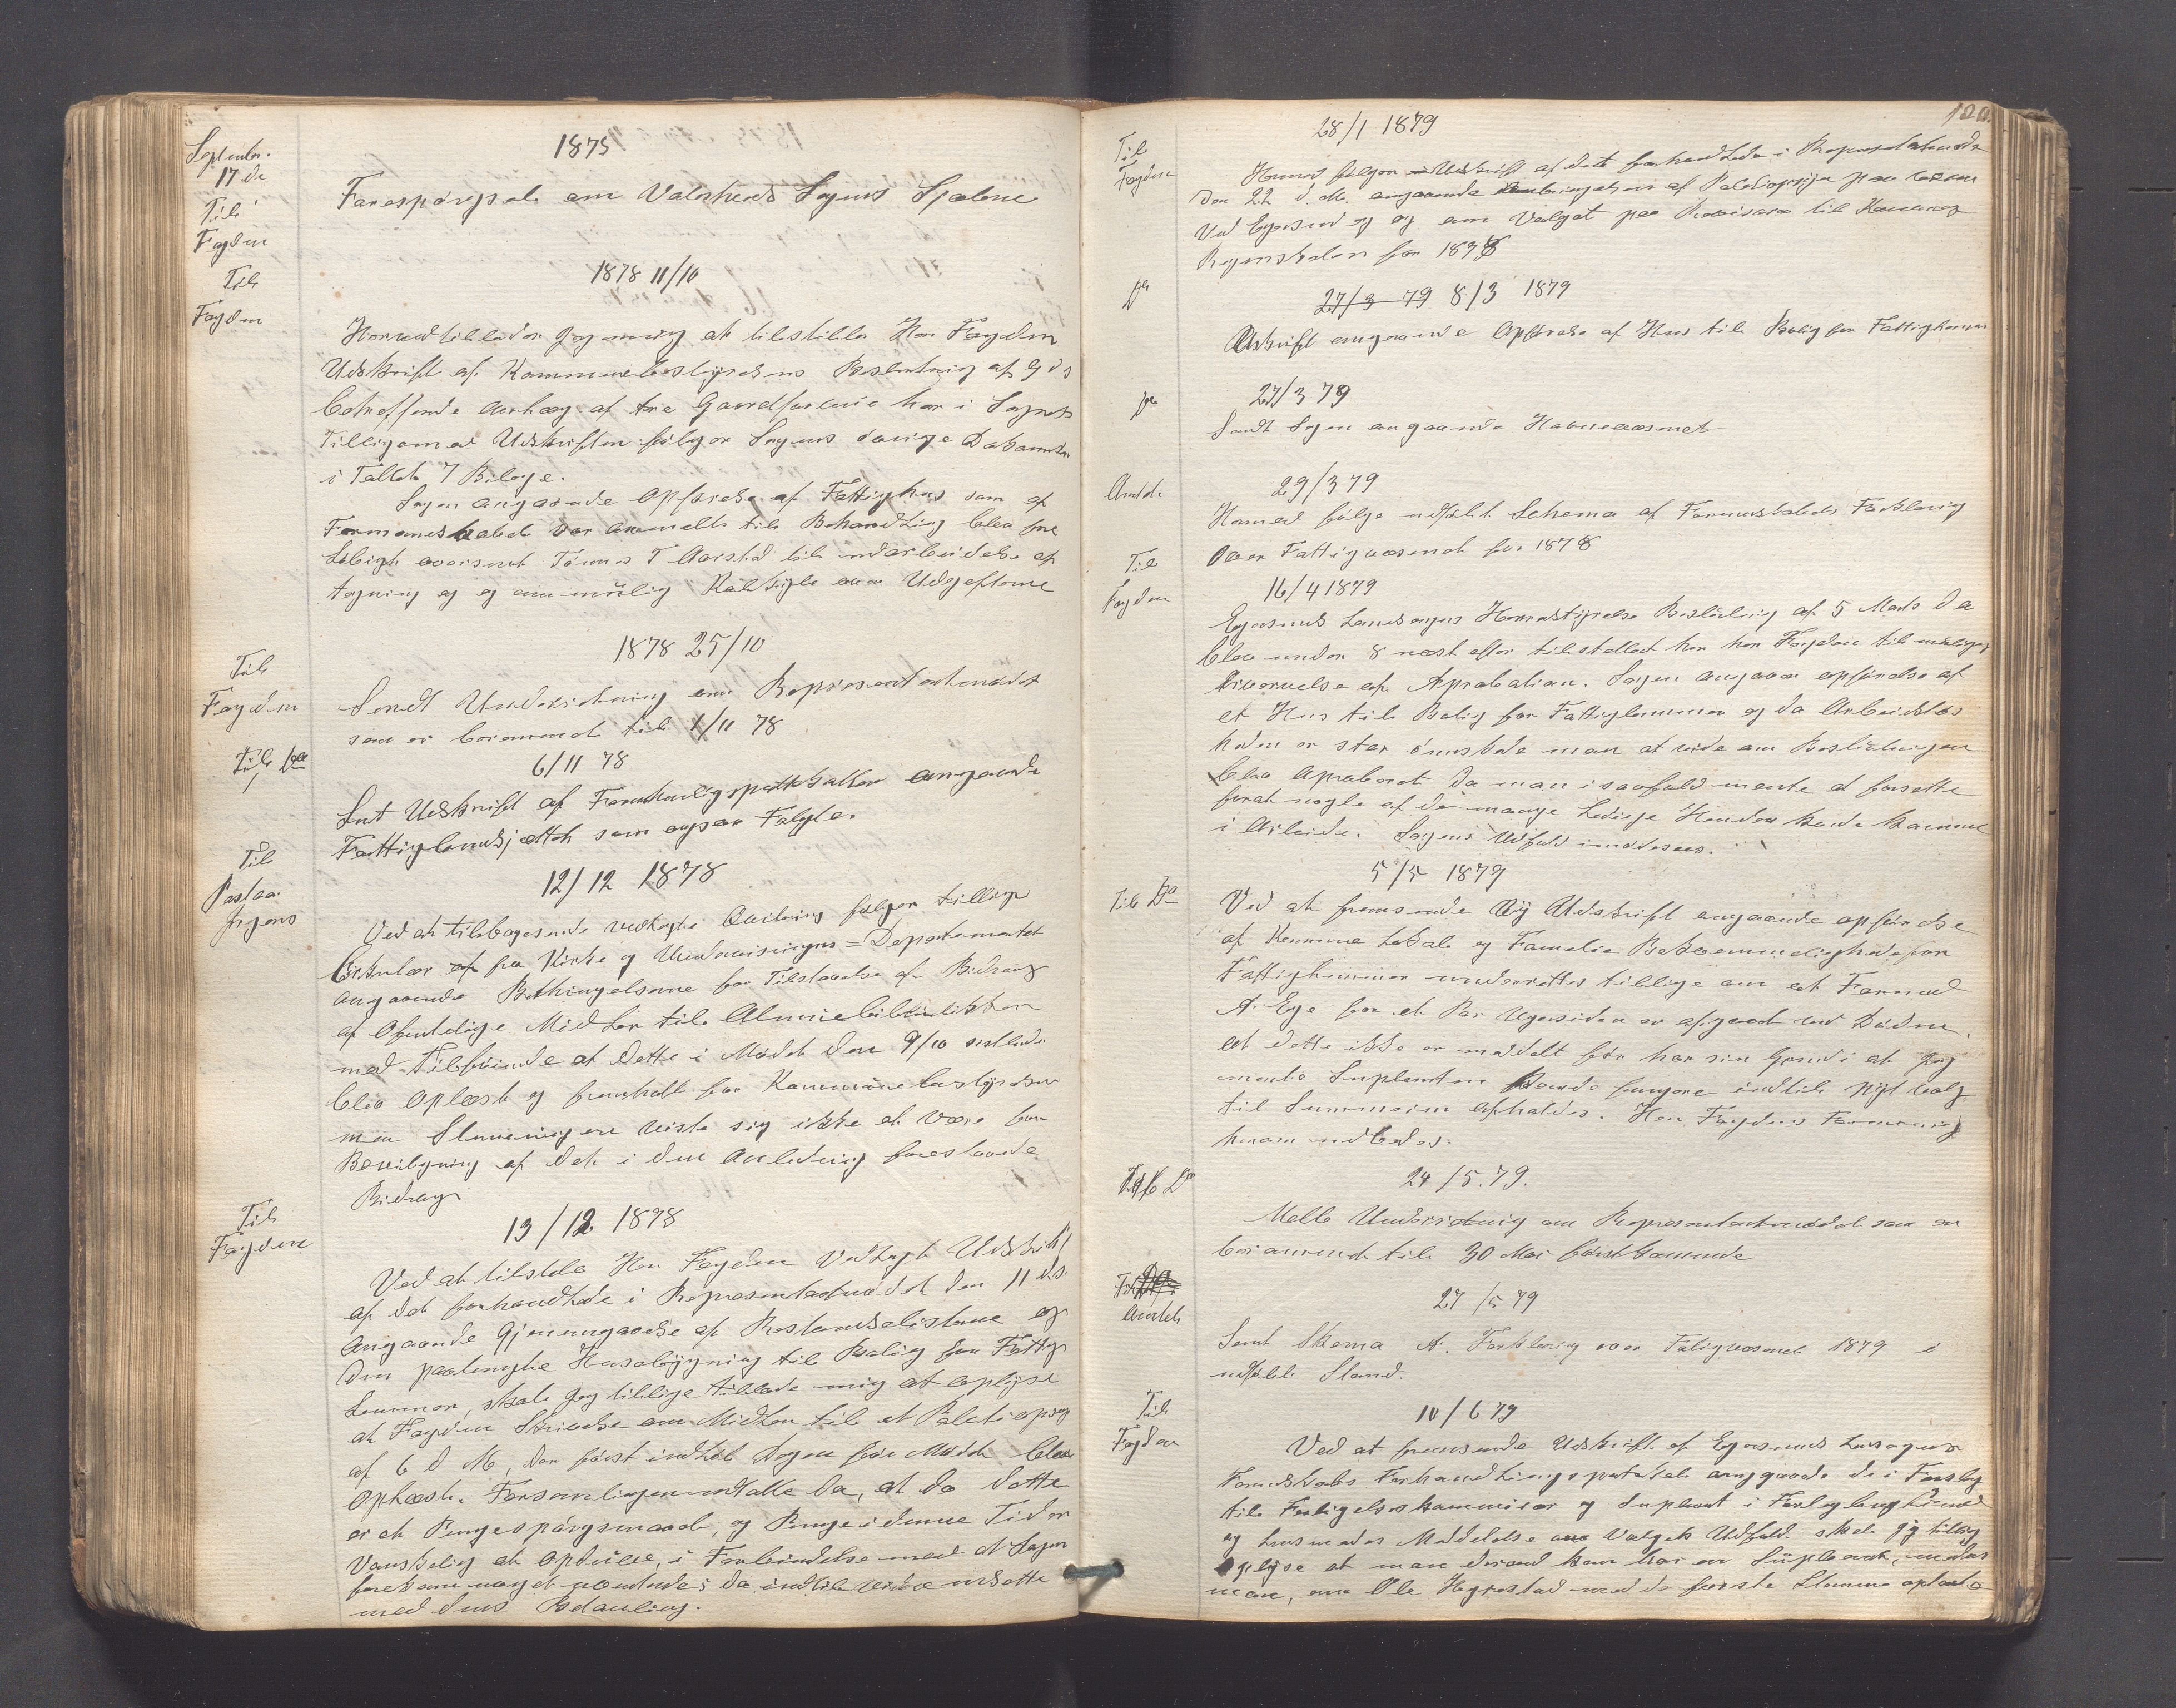 September.
17 de
Til
Fogden
1875
Forespørgsel om Valenheds Sogns Sjælene
Til
Fogden
1878 11/10
Herved tillader Jeg mig at tilstille Her Fogden
Udskrift af Kommunebestyrelsens Beslutning af 9 ds
betreffende Anlæg af tre Gaardsarveie her i Sognet
Tilligemed Udskriften følger Sagens øvrige Dokumenter
i Tallet 7 Bilage.
Sagen angaaende Opførelse af Fattighus som af
Formandskabet var anmeldt til Behandling blev fore
løbigt oversent Tønnes T Aarstad til udarbeidelse af
tegning og og om mulig Kalkyle over Udgifterne
Til
Fogden
1878 25/10
Sendt Underretning om Representantmødet
som er berammet til 1/11 78
Til Do
6/11 78
Sent Udskrift af Forhandlingsprotokallen angaaende
Fattiglemsjættet som ogsaa Falgte.
Til
Pastor
Jrgens
12/12 1878
Ved at tilbagesende vedlagte Qvitering følger tillige
Cirkulær fra Kirke og Undervisningens=Departementet
angaaende Bethingelserne for Tilstaaelse af Bidrag
af Ofentdlige Midler til Almuebiblioteker
med Tilføiende at dette i Mødet den 9/10 sistledne
blev Oplæst og fremholt for Kommunebestyrelsen
men Stemningen viste sig ikke at være for
Bevilgning af det i den Anledning forestaaede
Bidrag
Til
Fogden
13/12 1878
Ved at tilstille Her Fogden Vedlagte Udskrift
af det forhandlede i Representantmødet den 11 ds.
Angaaende Gjennemgaaelse af Restanselisterne og
den paatenkte Husebygning til Bolig for Fattig
Lemmer, skal Jeg tillige tillade mig at oplyse
at Fogden Skrivelse om Midler til et Politiopsyn
af 6 d M, der først indløb Dagen før Mødet blev
Oplæst. Forsamlingen udtalte da, at da dette
er et Pengespørgsmaal, og Penge i denne Tid er
Vanskelig at opdrive, i Forbindelse med at Sagen
forekom noget uventede; da indtil videre udsette
med dens Behandling.
120.
Til
Fogden
28/1 1879
Hermed følger Udskrift af det forhandlede i Representantmøde
den 22 d. M. angaaende af Politiopsyn paa
Ved Egersund og og om Valget paa Revisorer til Kommune
Regnskabet for 1878
Do
27/3 79 8/3 1879
Udskrift angaaende Opførelse af Hus til Bolig for Fattiglemmer
Do
27/3 79
Sendt Sagen angaaende Havnevæsenet
Amtet
29/3 79
Hermed følge udfyldt Schema af Formandskabets Forklaring
Over Fattigvæsenet for 1878
Til
Fogden
16/4 1879
Egersunds Landsogns Herredstyrelse Beslutning af 5 Marts d a
blev under 8 næst efter tilstellet her Her Fogden til muligens
Erværvelse af Aprobation. Sagen angaar opførelse af
et Hus til Bolig for Fattiglemmer og da Arbeidsløs
heden er stor ønskede man at vide om Beslutningen
blev Aproberet da man i saafald mente at forsette
forat nogle af de mange Ledige Hender kunde komme
i Arbeide. Sagens Udfald imødesees.
Til Do
5/5 1879
Ved at fremsende Ny Udskrift angaaende opførelse
af Kommune Lokale og Familie Bekvemmelighed for
Fattiglemmer underrettes tillige om at Formand
A. Ege for et Par Uger siden er afgaaet ved Døden.
At dette ikke er meddelt før har sin Grund i at Jeg
mente Suplenten kunde fungere indtil nyt Valg
til Sommeren afholdes. Her Fogdens Formening
herom udbedes.
Til Do
24/5. 79.
Melt Underretning om Representantmødet som er
berammet til 30 Mai førstkommende
Til
Amtet
27/5 79
Sent Skema A. Forklaring over Fatigvæsenet 1879 i
udfyldt Stand.
Til
Fogden
10/6 79
Ved at fremsende Udskrift af Egersunds Lansogns
Formdskabs Forhandlingsprotokol angaaende de i Forslag
til Forligelseskommisær og Suplent i Egersund
og Meddelelse om Valgets Udfald skal jeg tillige
oplyse at man derved kun har en Supleant, medes
man, om Ole Hegrestad med de færste Stemme optoges